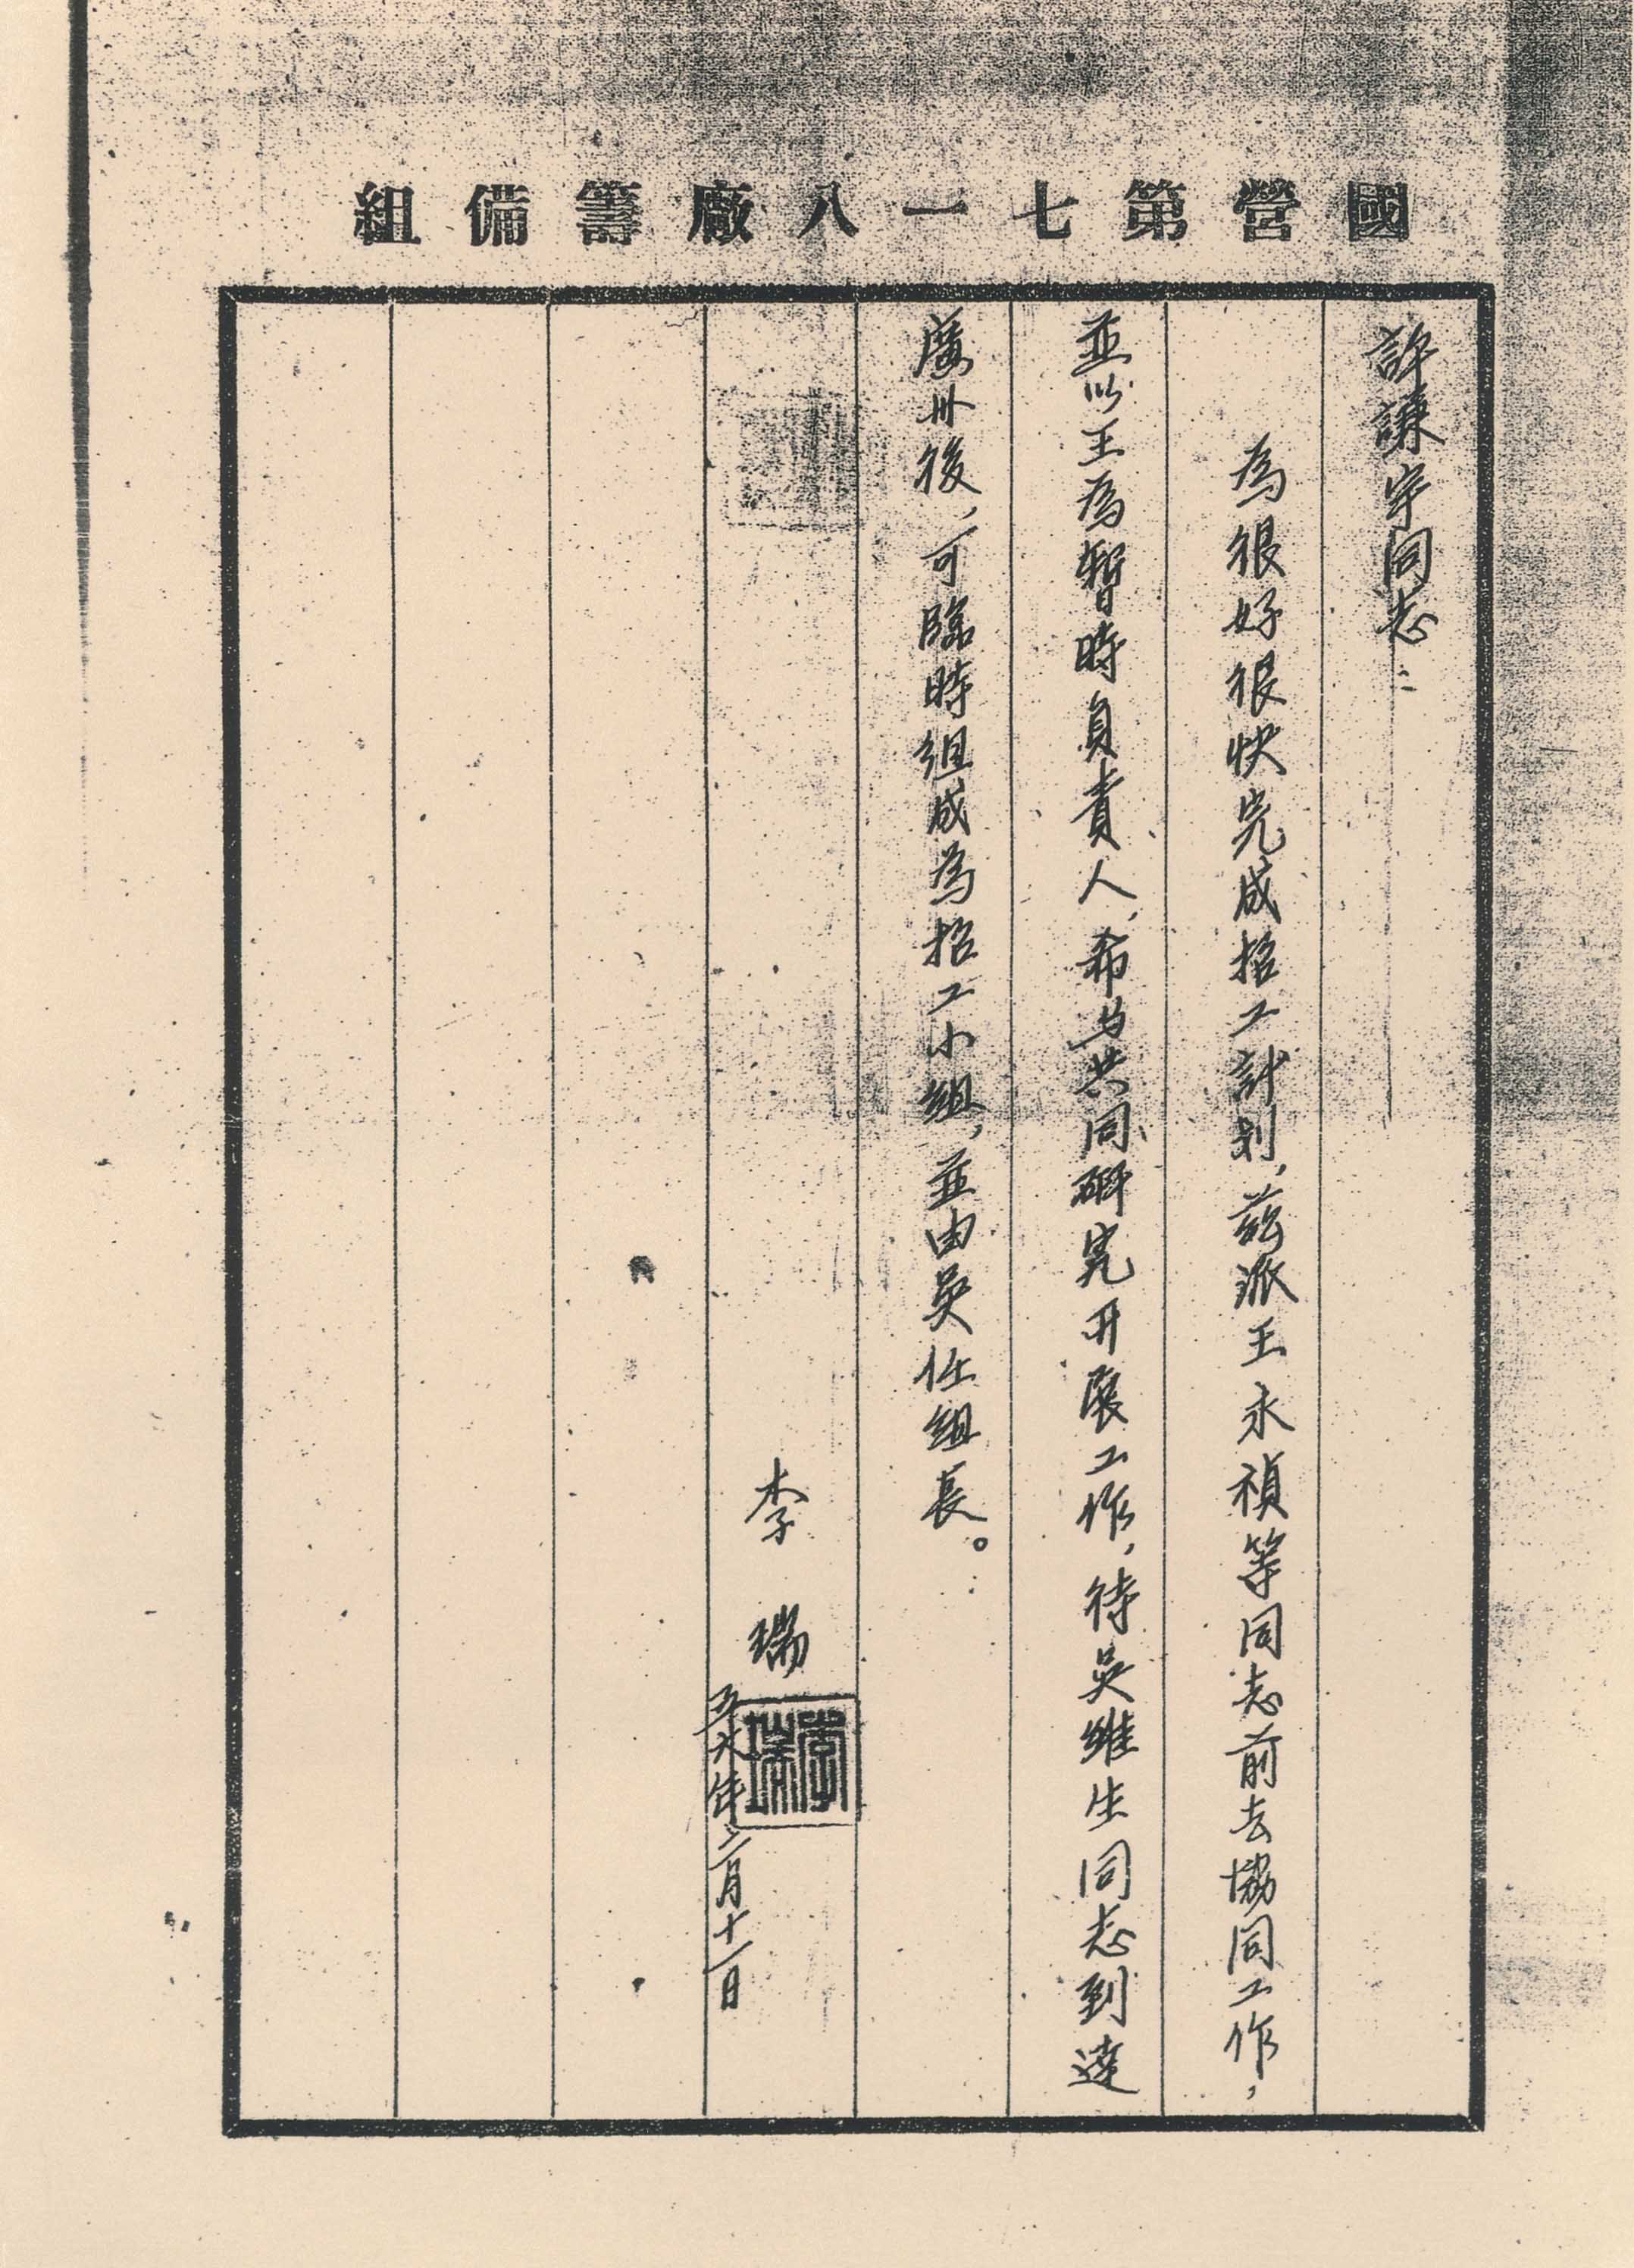 國營第七一八廠籌備組
許謙宇同志：
為很好很快完成招工計划，茲派王永禎等同志前去協同工作，
並以王為暫時負責人，希与共同研究开展工作，待吳維生同志到達
廣州後，可臨時組成為招工小組，並由吳任組長。
李瑞
李瑞
五六年二月十一日